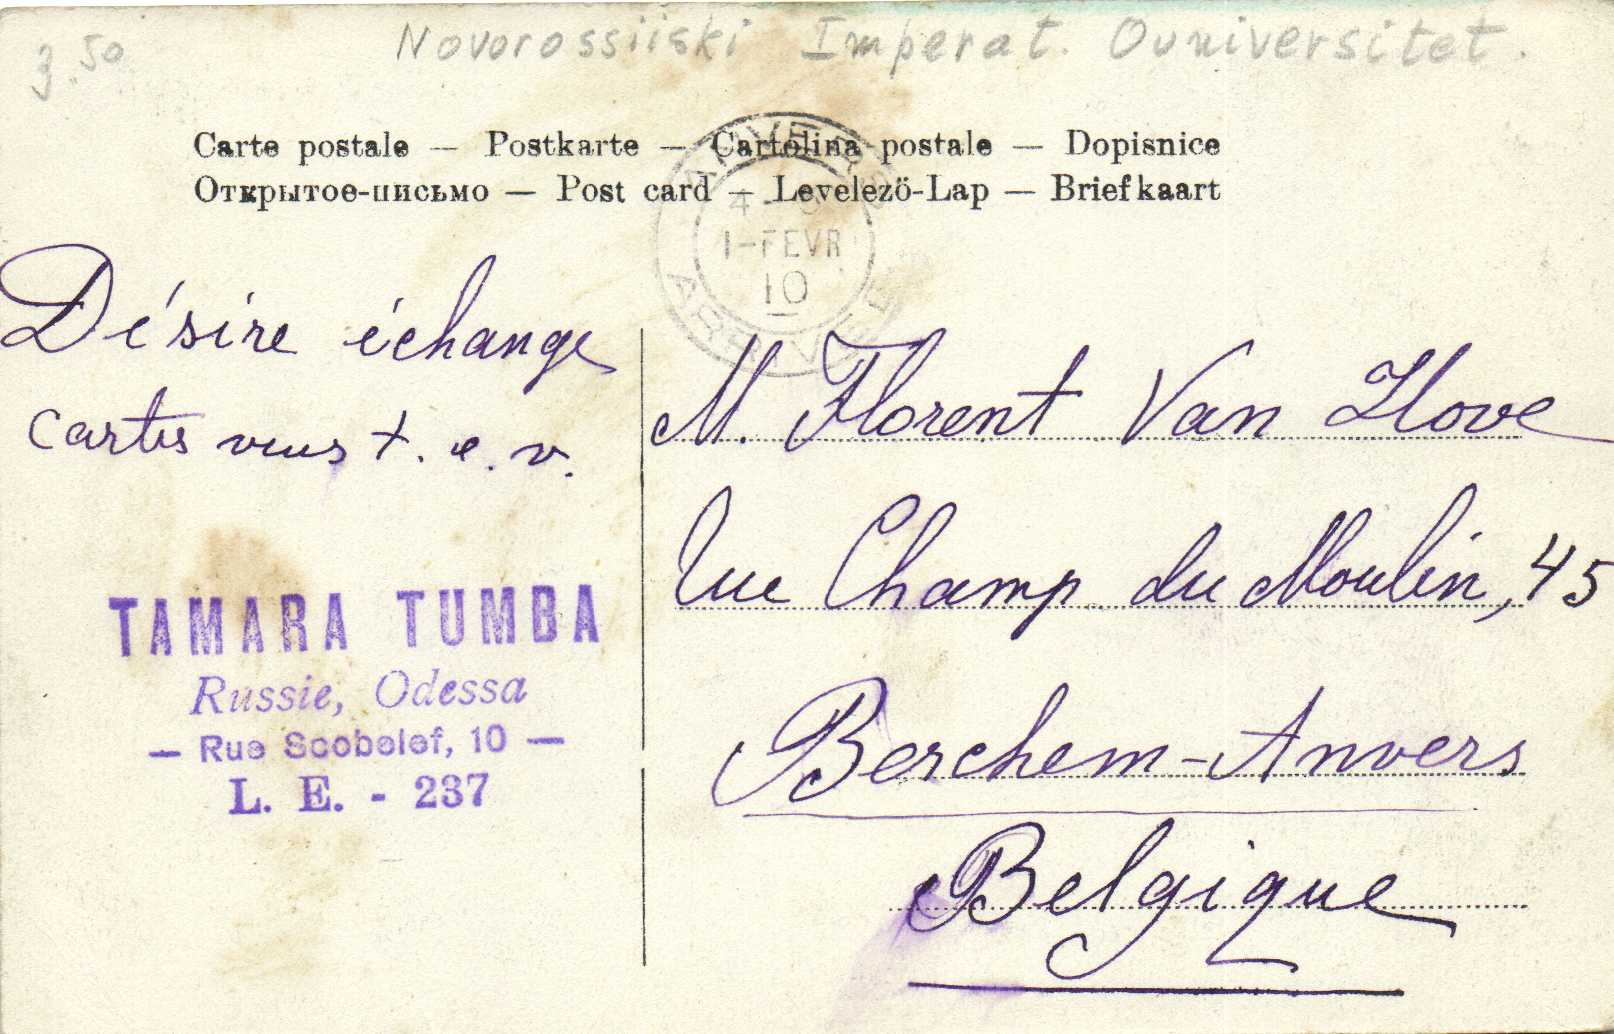 3.50
Novorossiiski Imperat. Ouniversitet.
Carte postale — Postkarte — Cartolina postale — Dopisnice
Открытое-письмо — Post card — Levelezö-Lap — Briefkaart
ANVERS
1-FEVR
10
ARRIVÉE
Désire échange
cartes vues t. c. v.
M. Florent Van Hove
rue Champ du Moulin, 45
Berchem-Anvers
Belgique
TAMARA TUMBA
Russie, Odessa
— Rue Scobelef, 10 —
L. E. - 237